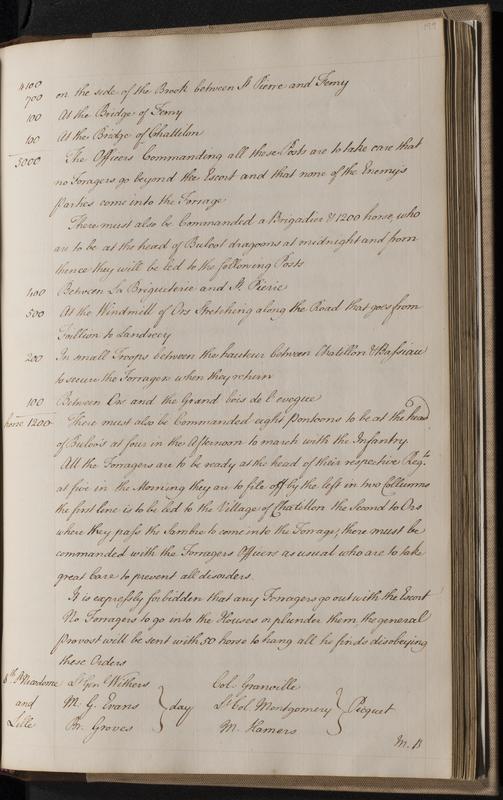 199
4100
700 on the side of the Brook between St Pierre and Femy
100 At the Bridge of Femy
100 At the Bridge of Chattilon
5000 The Officers Commanding all these Posts are to take care that
no Foragers go beyond the Escort and that none of the Enemys
Parties come into the Forrage
There must also be Commanded a Brigadier & 1200 horse, who
are to be at the head of Bulow dragoons at midnight and from
thence they will be led to the following Posts
400 Between La Briqueterie and St. Pierie
500 At the Windmill of Ors Stretching along the Road that goes from
Foillion to Landrecy
200 In small Troops between the hauteur between Chatillon & Bassiau
to secure the Forragers when they return
100 Between Ors and the Grand bois de l'eveque
horse 1200 There must also be Commanded eight Pontoons to be at the head
of Bulow's at four in the Afternoon to march with the Infantry.
All the Forragers are to be ready at the head of their respective Regts.
at five in the Morning they are to file off by the left in two Collumns
the first line is to be led to the Village of Chatillon the Second to Ors
where they pass the Sambre to come into the Forrage, there must be
commanded with the Forragers Officers as usual who are to take
great Care to prevent all disorders.
It is expressly forbidden that any Forragers go out with the Escort
No Forragers to go into the Houses or plunder them, the general
Provost will be sent with 50 horse to hang all he finds disobeying
these Orders
Lt. Genl. Withers Col. Granville
and M. G. Evans } day Lt. Col. Montgomery } Picquet
Lille Br. Groves M. Hamers
M. B